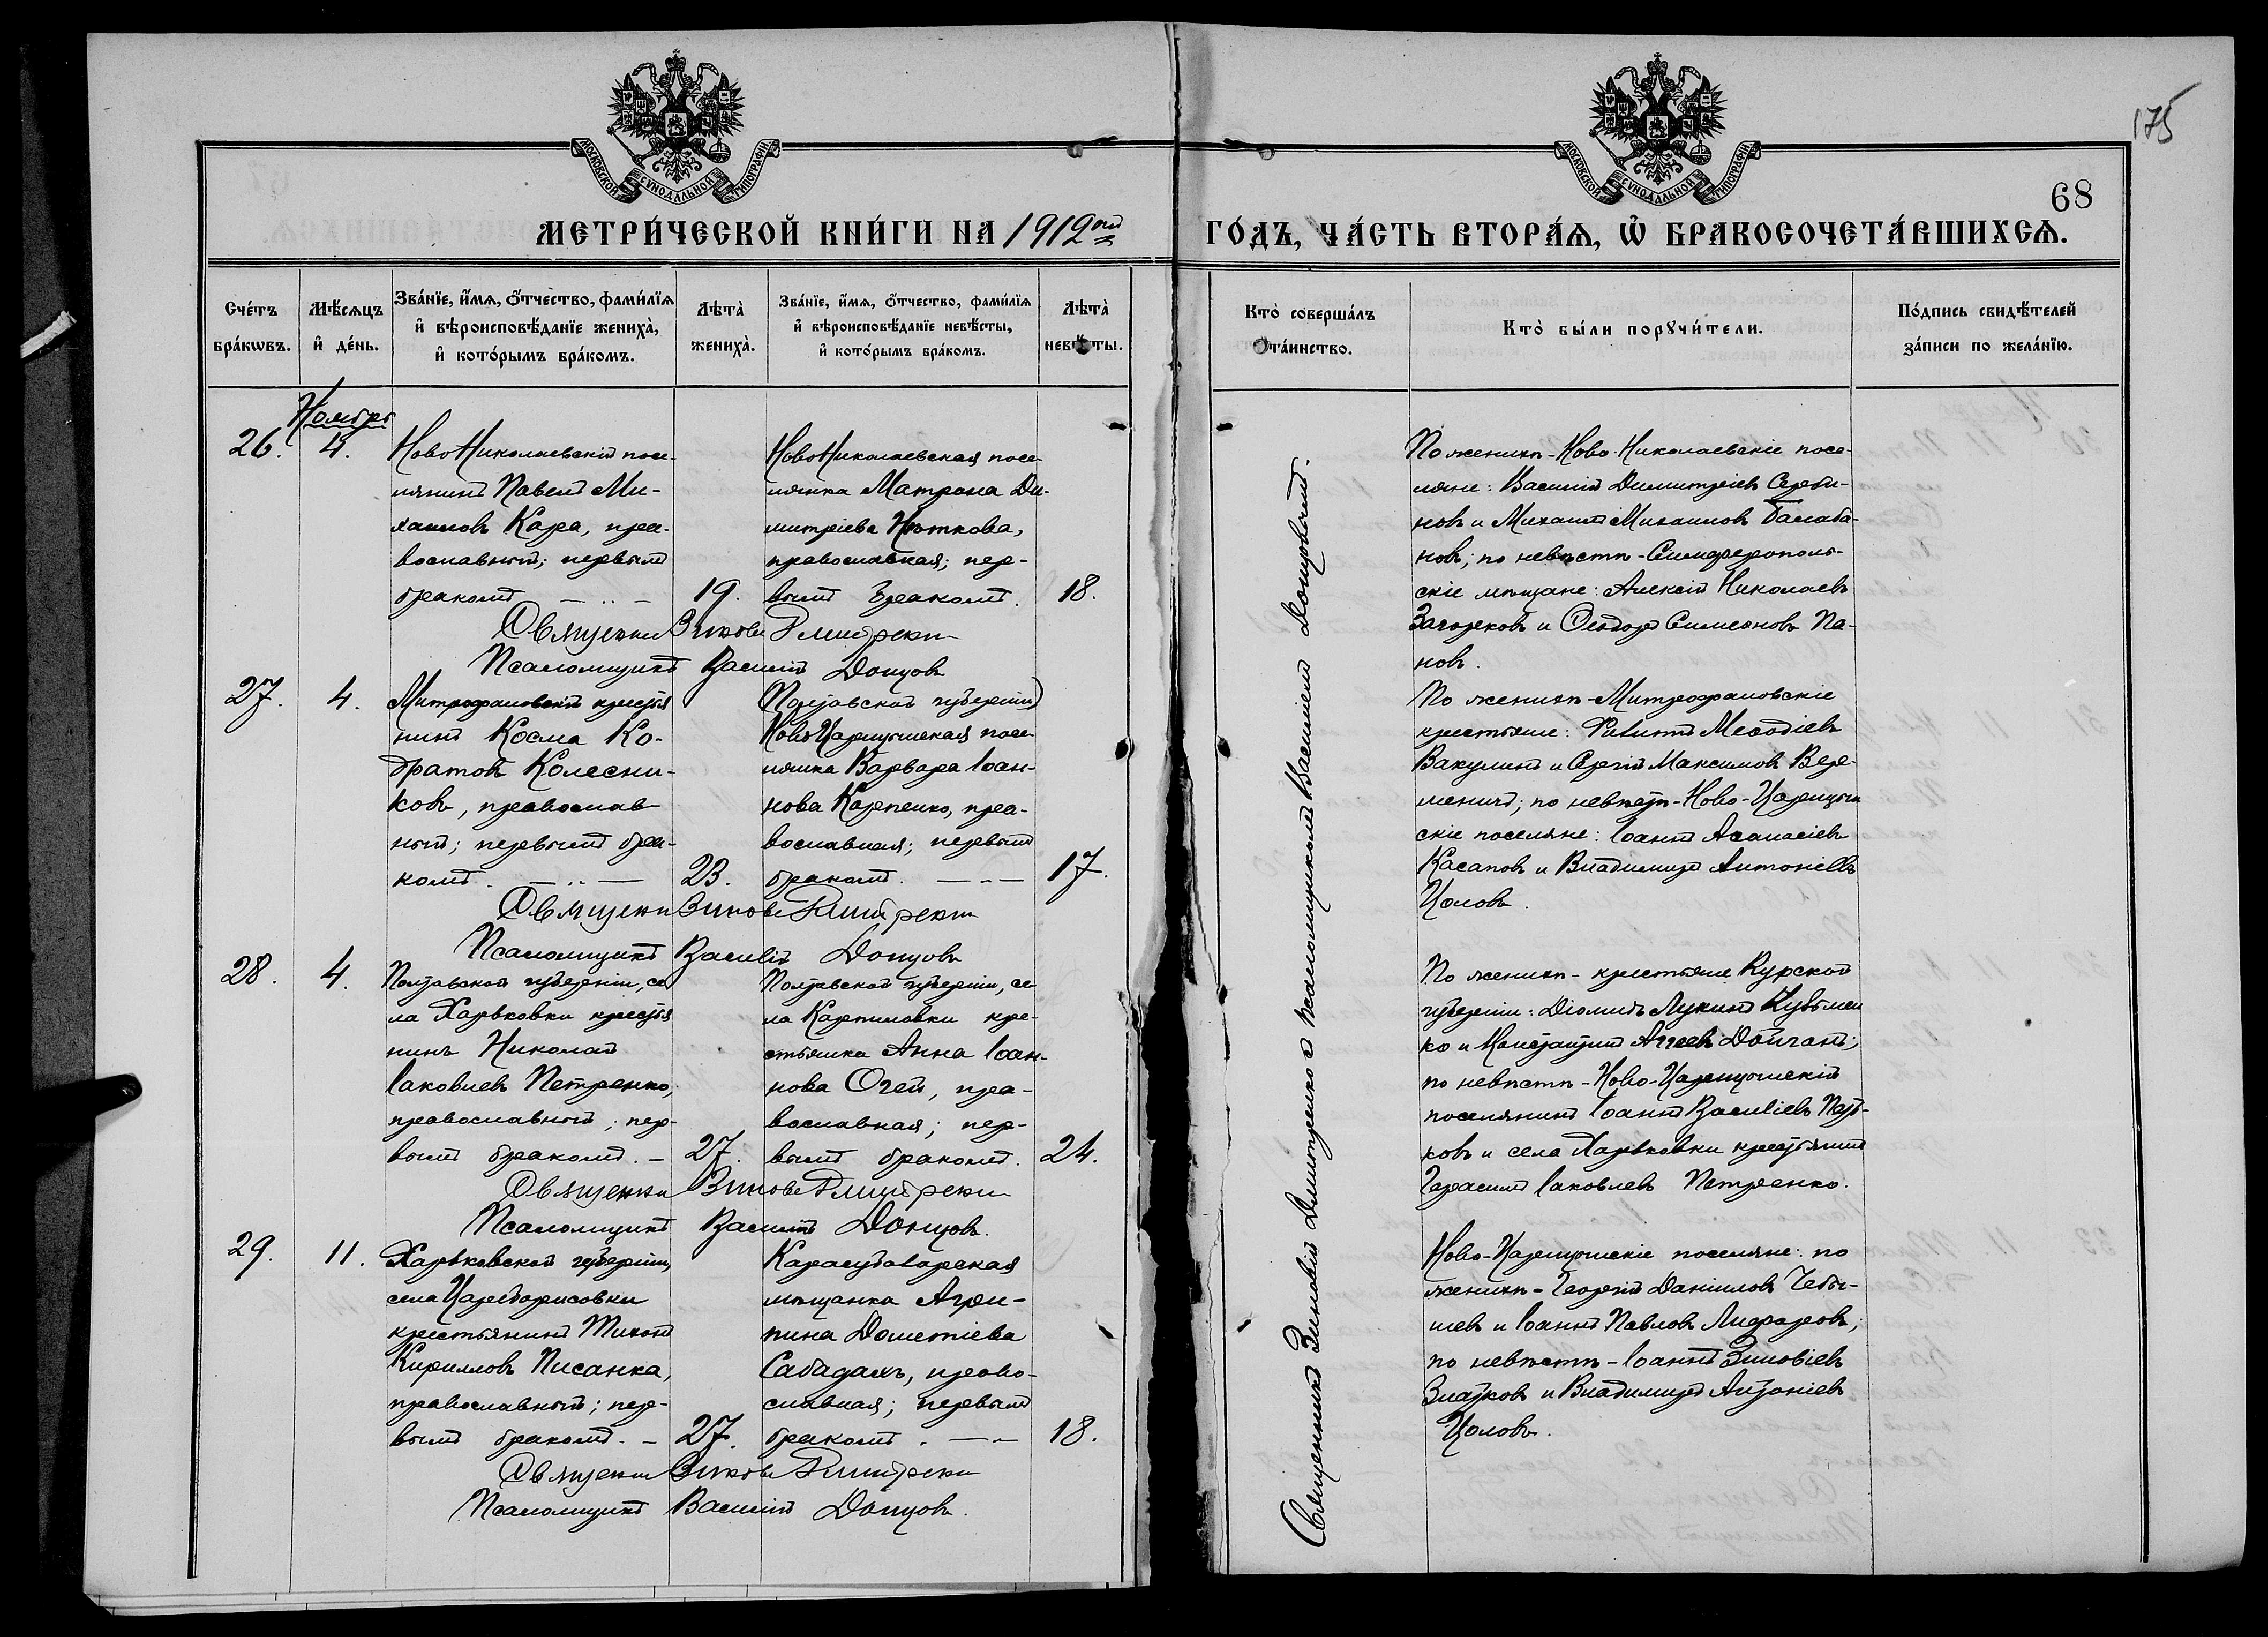 175
68
МОСКОВСКОЙ СѴНОДАЛЬНОЙ ТИПОГРАФІИ
МОСКОВСКОЙ СѴНОДАЛЬНОЙ ТИПОГРАФІИ
МЕТРИ́ЧЕСКОЙ КНИ́ГИ НА 1912ой ГО́ДЪ, ЧА́СТЬ ВТОРА́Ѧ, Ѽ БРАКОСОЧЕТА́ВШИХСѦ.
Сче́тъ бра́кѡвъ.
Мѣ́сѧцъ и҆ де́нь.
Зва́нїе, и҆́мѧ, ѻ҆́тчество, фами́лїѧ
и҆ вѣроисповѣ́данїе жениха̀,
и҆ кото́рымъ бра́комъ.
Лѣта̀ жениха̀.
Зва́нїе, и҆́мѧ, ѻ҆́тчество, фами́лїѧ
и҆ вѣроисповѣ́данїе невѣ́сты,
и҆ кото́рымъ бра́комъ.
Лѣта̀ невѣ́сты.
Кто̀ соверша́лъ та́инство.
Кто̀ бы́ли порꙋчи́тели.
По́дпись свидѣ́телей
за́писи по жела́нїю.
Ноябрь
26. 4.
Ново Николаевскій посе-
лянинъ Павелъ Ми-
хаиловъ Кара, пра-
вославный; первымъ
бракомъ 19.
Ново Николаевская посе-
лянка Матрона Ди-
митріева Няткова,
православная; пер-
вымъ бракомъ. 18.
По женихѣ-Ново-Николаевскіе посе-
ляне: Василій Димитріевъ Серби-
новъ и Михаилъ Михаиловъ Балаба-
новъ; по невѣстѣ-Симферополь-
скіе мѣщане: Алексій Николаевъ
Загорсковъ и Ѳеодоръ Симеоновъ Па-
новъ.
Священник Зиновій Дмитренко
Псаломщикъ Василій Донцовъ
27. 4.
Митрофановскій крестья
нинъ Косма Ко-
дратовъ Колесни-
ковъ, православ
ный; первымъ бра-
комъ. 23.
Полтавской губерніи)
Ново Царицынская посе
лянка Варвара Іоан-
нова Карпенко, пра-
вославная; первымъ
бракомъ. 17.
По женихѣ-Митрофановскіе
крестьяне: Филиппъ Меѳодіевъ
Вакулинъ и Сергій Максимовъ Вере-
меничъ; по невѣстѣ-Ново-Царицын
скіе поселяне: Іоаннъ Аѳанасіевъ
Касаповъ и Владимиръ Антоніевъ
Цоловъ.
Священник Зиновій Дмитренко
Псаломщикъ Василій Донцовъ
28. 4.
Полтавской губерніи, се
ла Харьковки крестья
нинъ Николай
Іаковлевъ Петренко,
православный; пер-
вымъ бракомъ. 27.
Полтавской губерніи, се
ла Карпиловки кре-
стьянка Анна Іоан-
нова Огей, пра-
вославная; пер-
вымъ бракомъ. 24.
По женихѣ-крестьяне Курской
губерніи: Діомидъ Лукинъ Кузьмен
ко и Аггеевъ
по невѣстѣ-Ново-Царицынскій
поселянинъ Іоаннъ Василіевъ Пать-
ковъ и села Харьковки крестьянинъ
Герасимъ Іаковлевъ Петренко.
Священник Зиновій Дмитренко
Псаломщикъ Василій Донцовъ.
29. 11.
Харьковской губерніи,
села Цареборисовки
крестьянинъ Тихонъ
Кирилловъ Писанка,
православный; пер-
вымъ бракомъ. 27.
Карасубазарская
мѣщанка Агри-
пина Дометіева
Сабадахъ, право-
славная; первымъ
бракомъ. 18.
Ново-Царицынскіе поселяне: по
женихѣ-Георгій Даніиловъ Чебы-
шевъ и Іоаннъ Павловъ Лифаровъ;
по невѣстѣ-Іоаннъ Зиновіевъ
Златковъ и Владимиръ Антоніевъ
Цоловъ.
Священник Зиновій Дмитренко
Псаломщикъ Василій Донцовъ.
Священникъ Зиновій Дмитренко съ псаломщикомъ Василіемъ Донцовымъ.